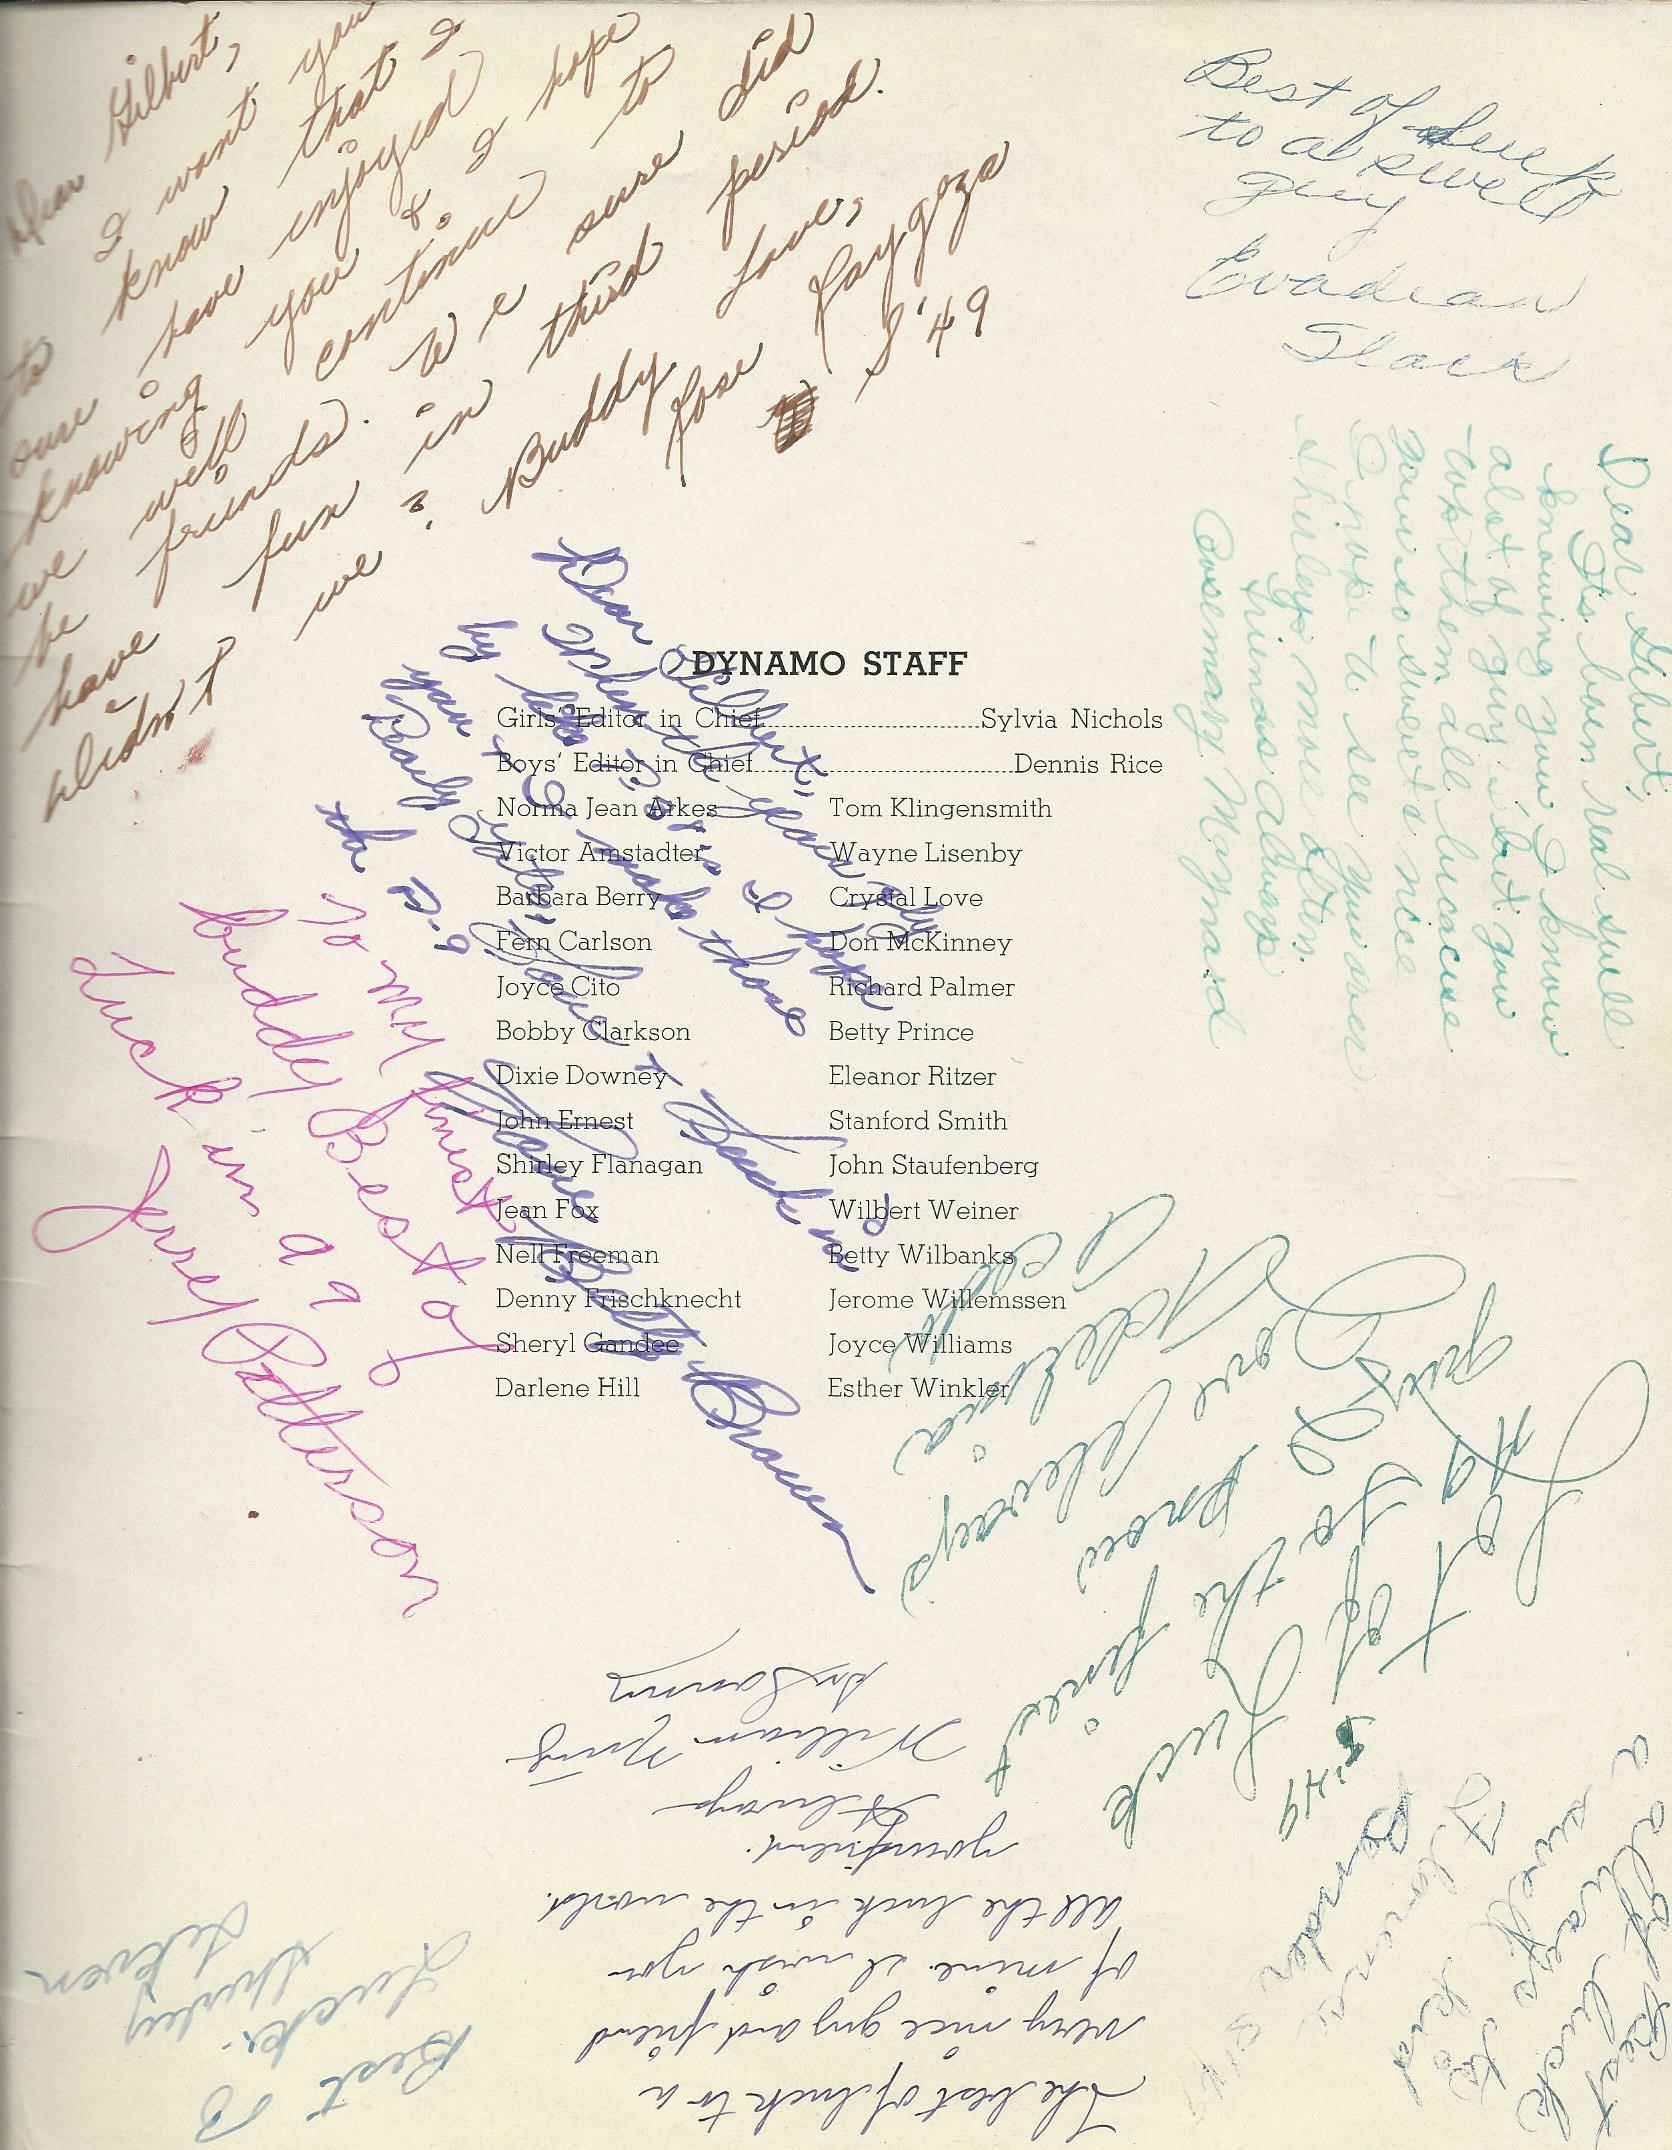 Dear Gilbert,
I want you
to know that I
sure have enjoyed
knowing you & I hope
we will continue to
be friends. We sure did
have fun in third period.
didn't we? Buddy Love,
Rose Raygoza
S'49
Best of Luck
to a swell
guy
Evadean
Slack
Dear Gilbert,
It's been real swell
knowing you. I know
alot of guys but you
top them all because
your so sweet & nice
I hope to see you over
Shirleys more often.
Friends always
Rosemary Maynard
DYNAMO STAFF
Girls' Editor in Chief Sylvia Nichols
Boys' Editor in Chief Dennis Rice
Norma Jean Arkes Tom Klingensmith
Victor Amstadter Wayne Lisenby
Barbara Berry Crystal Love
Fern Carlson Don McKinney
Joyce Cito Richard Palmer
Bobby Clarkson Betty Prince
Dixie Downey Eleanor Ritzer
John Ernest Stanford Smith
Shirley Flanagan John Staufenberg
Jean Fox Wilbert Weiner
Nell Freeman Betty Wilbanks
Denny Frischknecht Jerome Willemssen
Sheryl Gandee Joyce Williams
Darlene Hill Esther Winkler
Dear Gilbert,
When the years fly
by like I hope
you & I make those
Love & Luck in
the B-9
Love Betty Brown
To my finest
buddy Best of
Luck in a 9
Jerrey Patterson
Lot of Luck
to the finest
guy I know
Love Always
S'49
The best of luck to a
very nice guy and friend
of mine. I wish you
all the luck in the world.
your friend.
Always
William
Best of
Luck.
Shirley
a alway
a swell kid
Best luck to
Florence
Bender